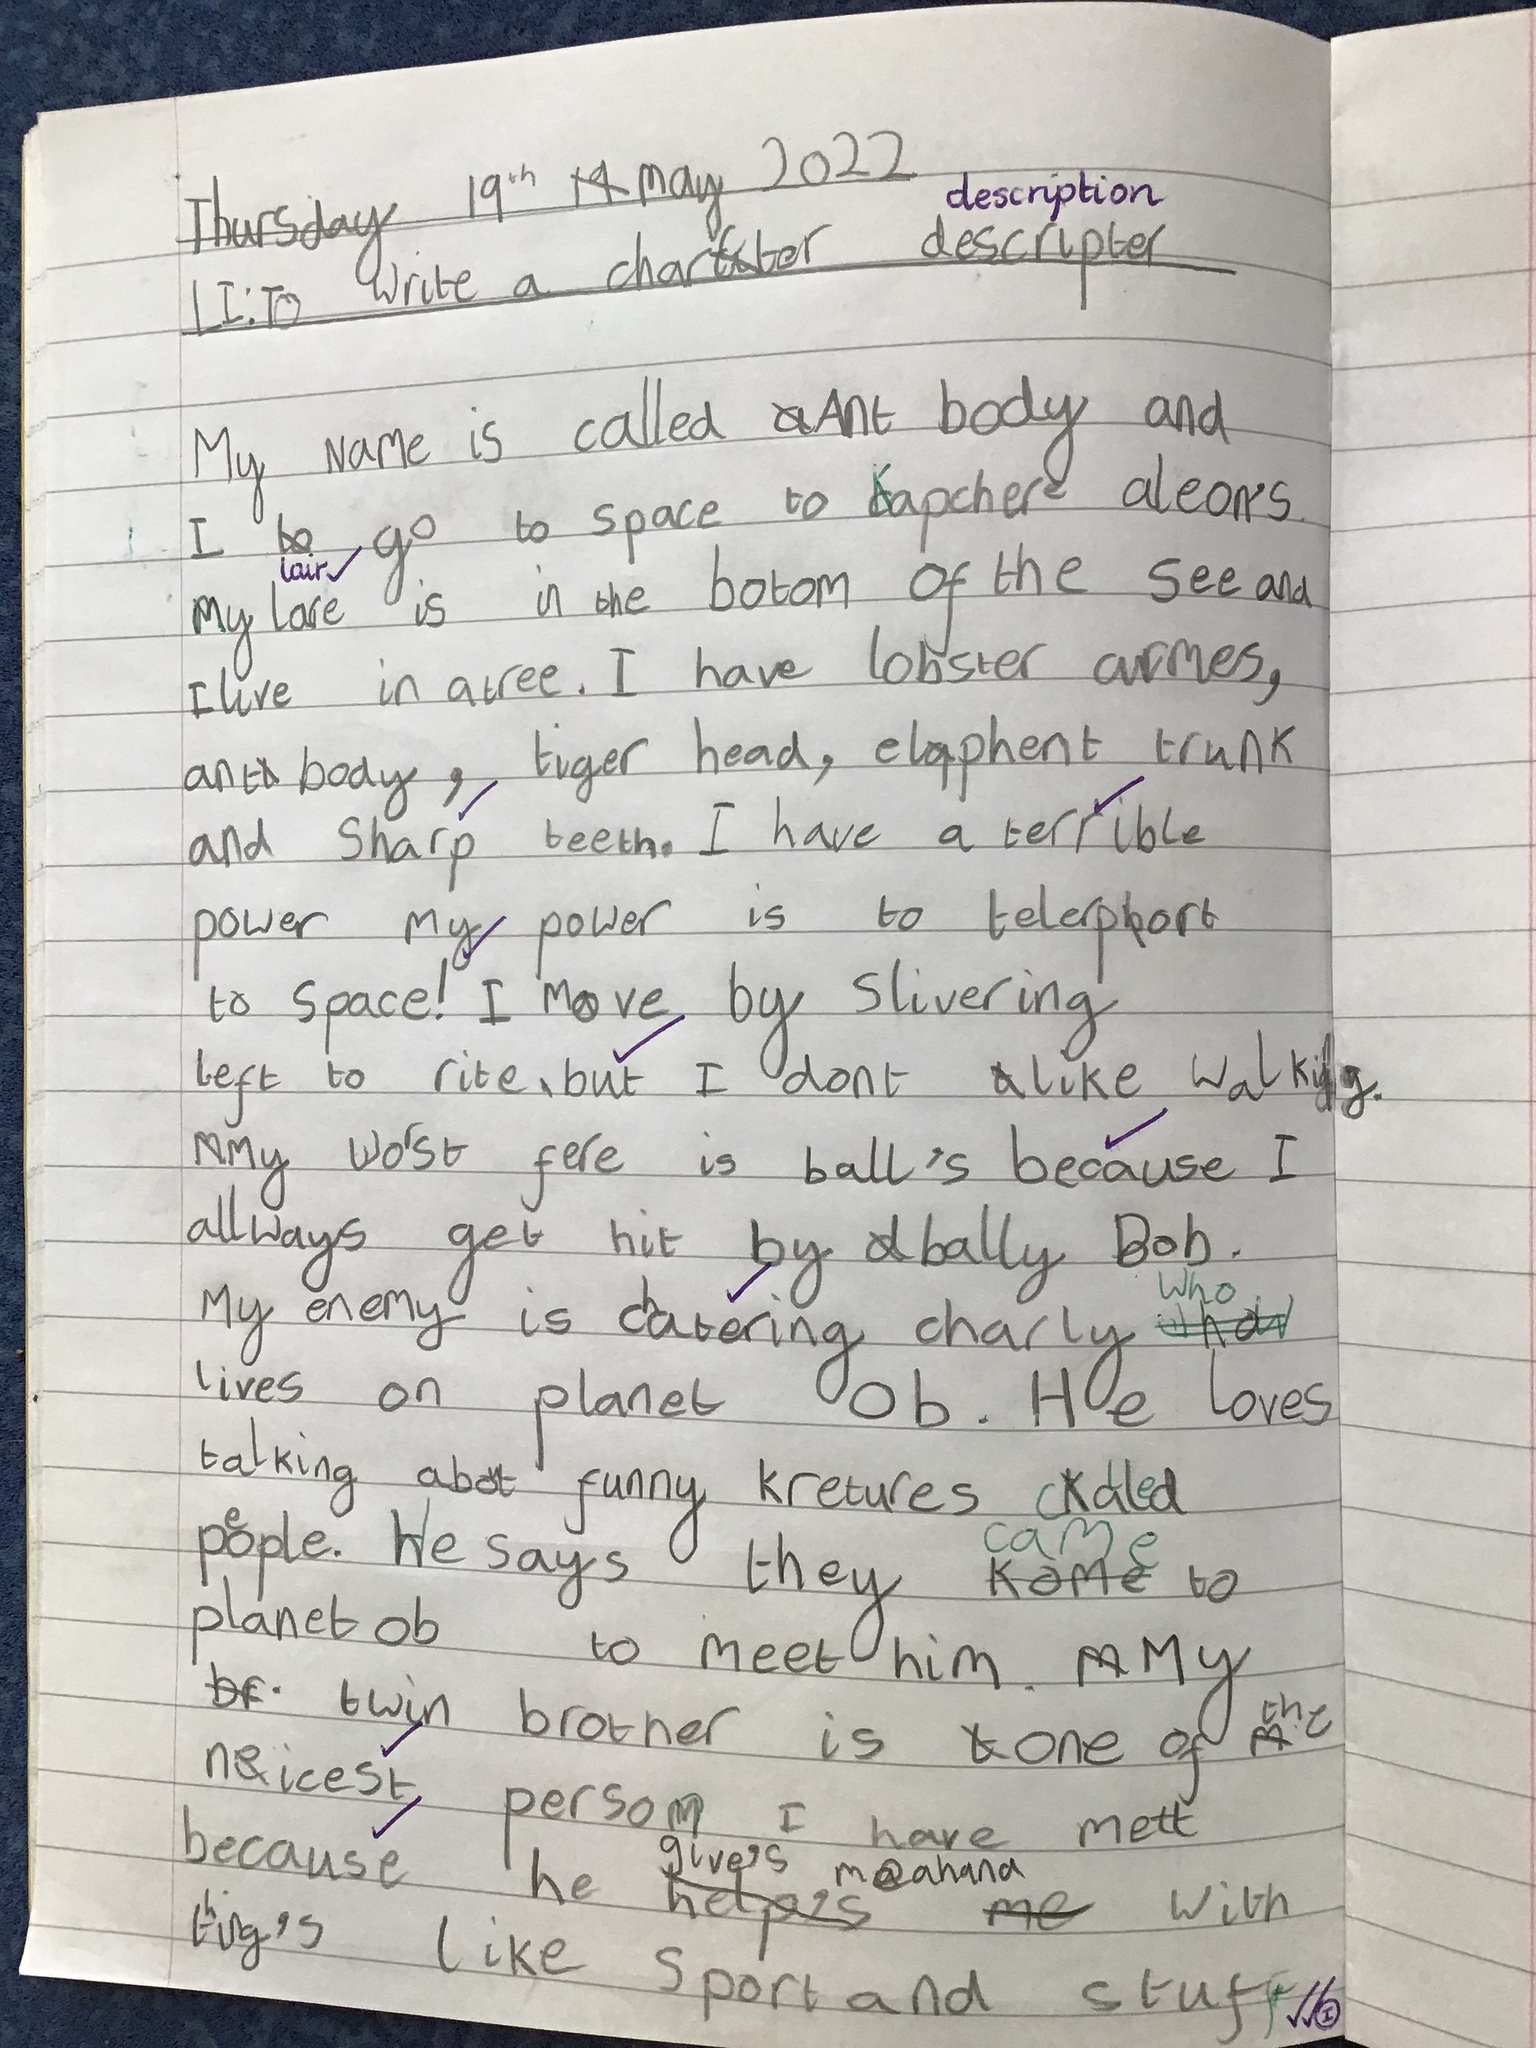 Thursday 19th May 2022
description
LI: To write a charter descripter
My Name is called Ant body and
I go to space to kapchere aleons.
lair
My lare is in the botom of the see and
I live in a tree. I have lobster armes,
ant body, tiger head, elaphent trunk
and sharp teeth. I have a terrible
power my power is to teleport
to space! I move by slivering
left to rite, but I dont like walking.
My worst fere is ball's because I
allways get hit by bally Bob.
who
My enemy is chatering charly
lives on planet Ob. He loves
talking abot funny kretures called
people. He says they came to
planet ob to meet him. My
twin brother is one of the
nicest person I have mett
give's me a hand
because he help's me with
thing's like sport and stuff